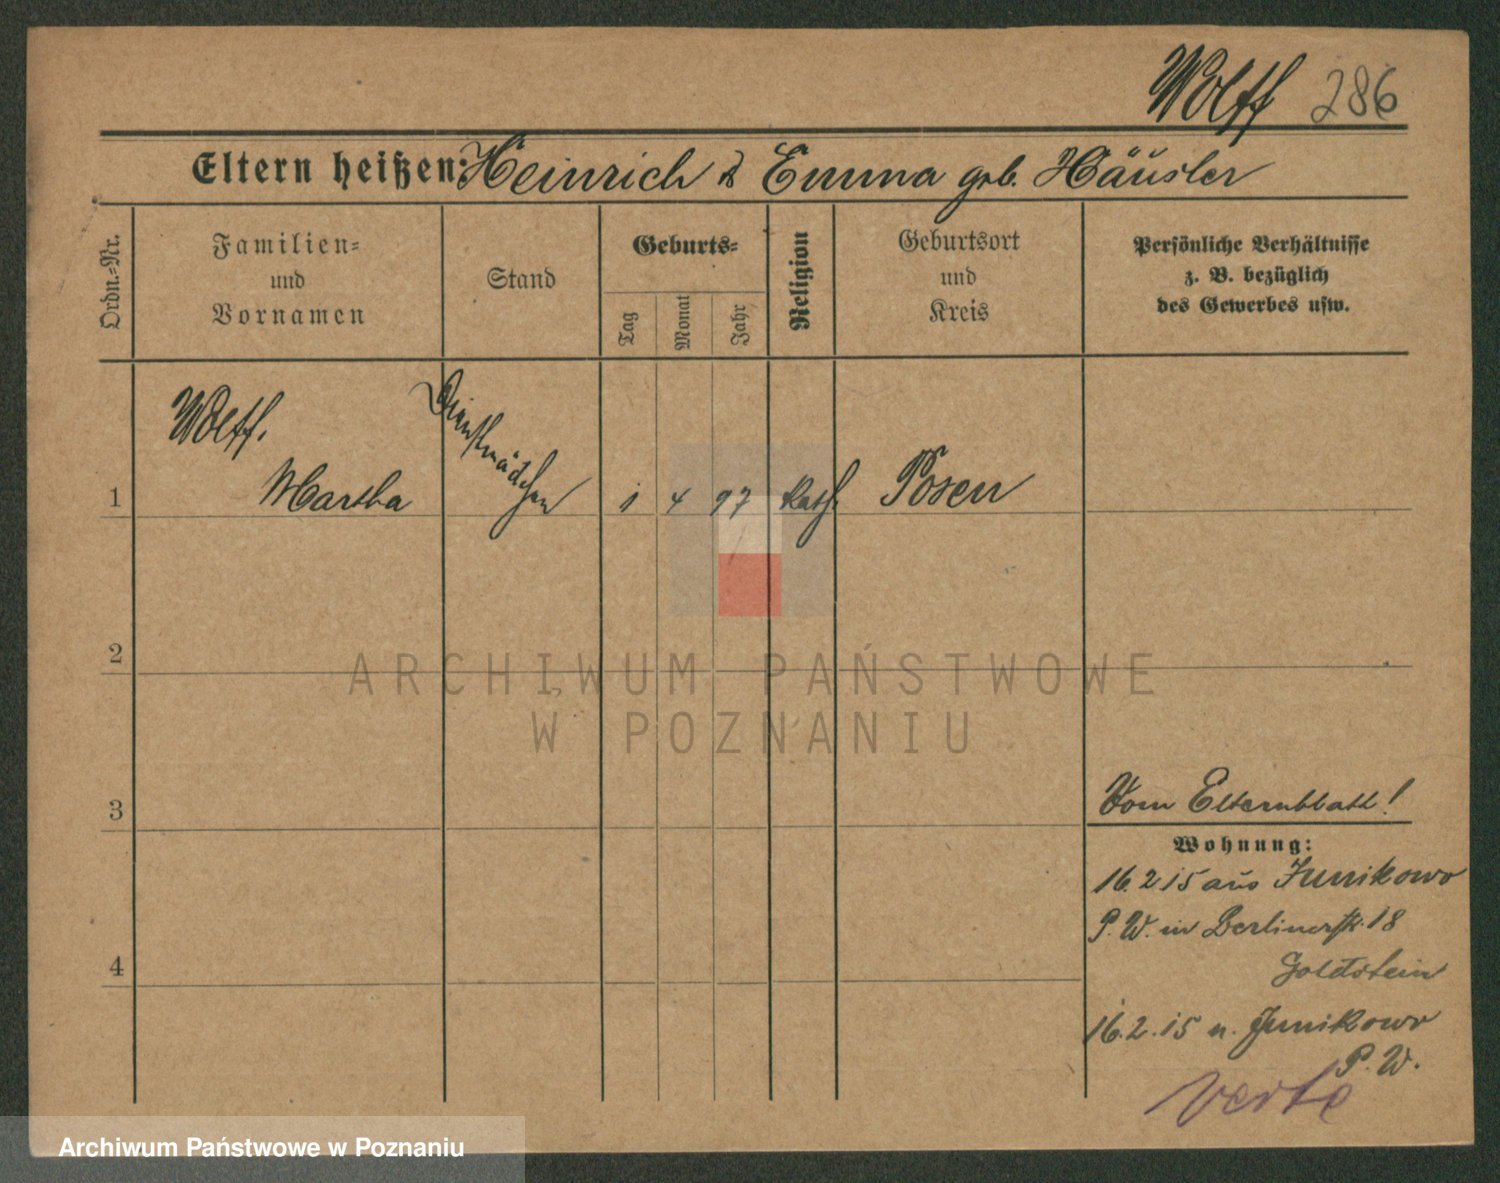 Wolff 286
Eltern heißen: Heinrich & Emma geb. Häusler
Ordn.-Nr.
Familien-
und
Vornamen
Stand
Geburts-
Tag
Monat
Jahr
Religion
Geburtsort
und
Kreis
Persönliche Verhältnisse
z. B. bezüglich
des Gewerbes usw.
Wolff.
1 Martha Dienstmädchen 1 4 97 kath. Posen
2
3
4
Vom Elternblatt!
Wohnung:
16.2 15 aus Junikowo
P. W. in Berlinerstr. 18
Goldstein
16.2.15 n. Junikowo
P. W.
verte
ARCHIWUM PAŃSTWOWE
W POZNANIU
Archiwum Państwowe w Poznaniu